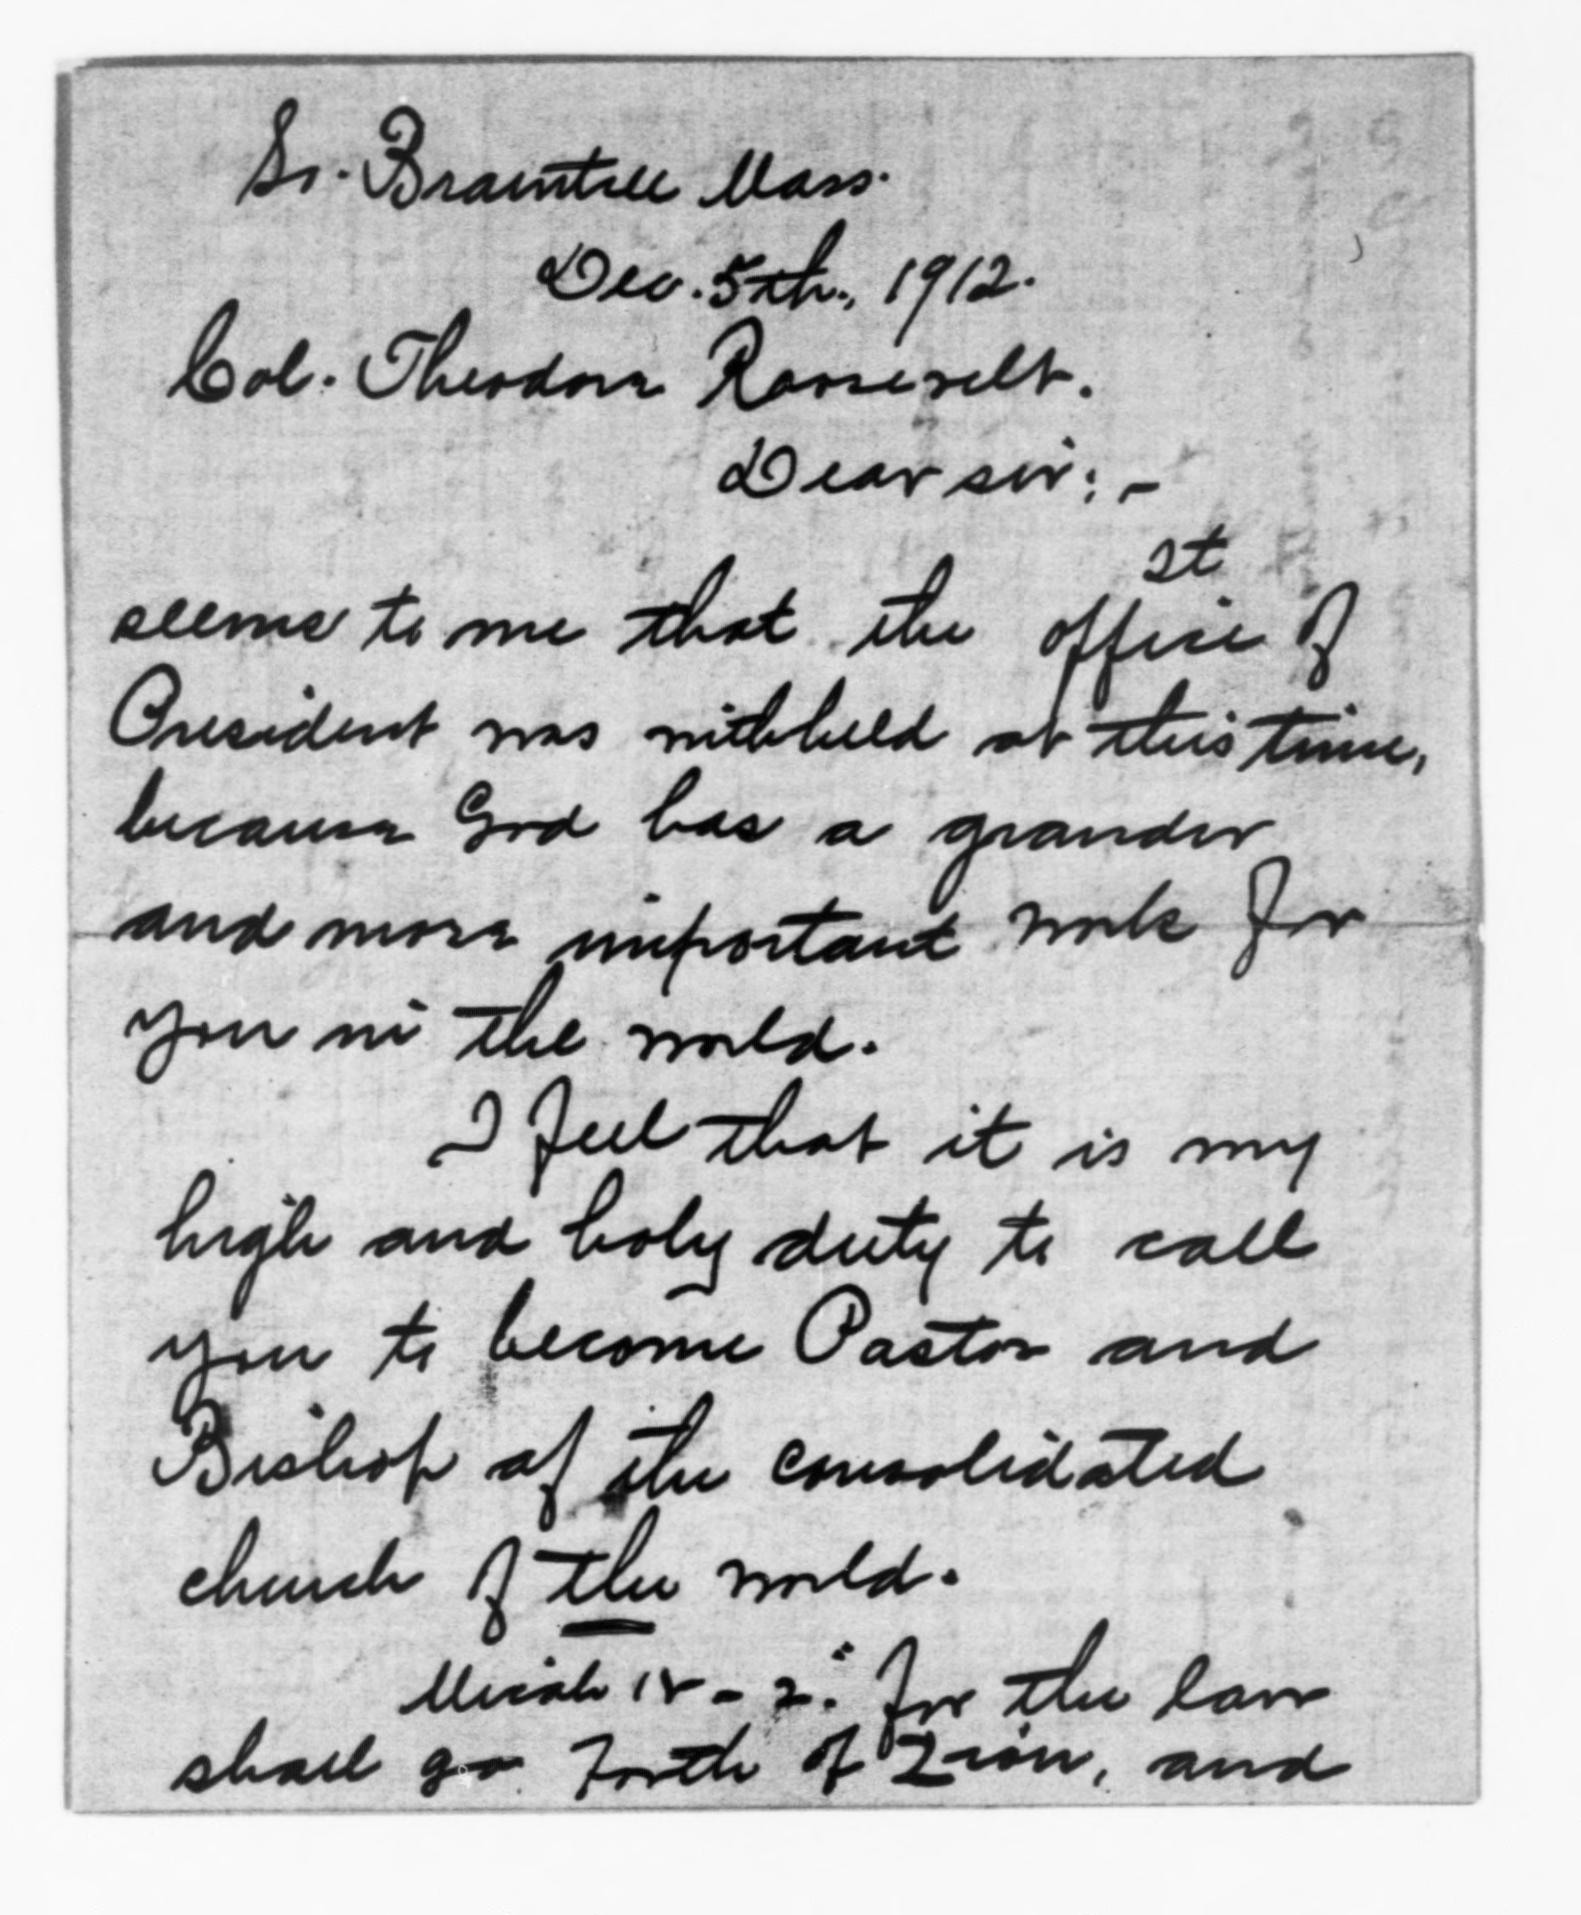 So. Braintree Mass.
Dec. 5th., 1912.
Col. Theodore Roosevelt.
Dear sir:-
It
seems to me that the office of
President was withheld at this time,
because God has a grander
and more important work for
you in the world.
I feel that it is my
high and holy duty to call
you to become Pastor and
Bishop of the consolidated
church of the world.
Micah IV-2: "For the law
shall go forth of Zion, and